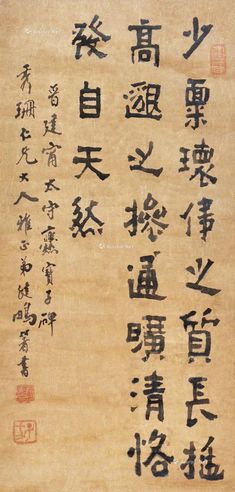 少稟瓌偉之質長挺
高邈之操通曠清恪
發自天然
晉建甯太守爨寶子碑
秀珊仁兄大人雅正弟書